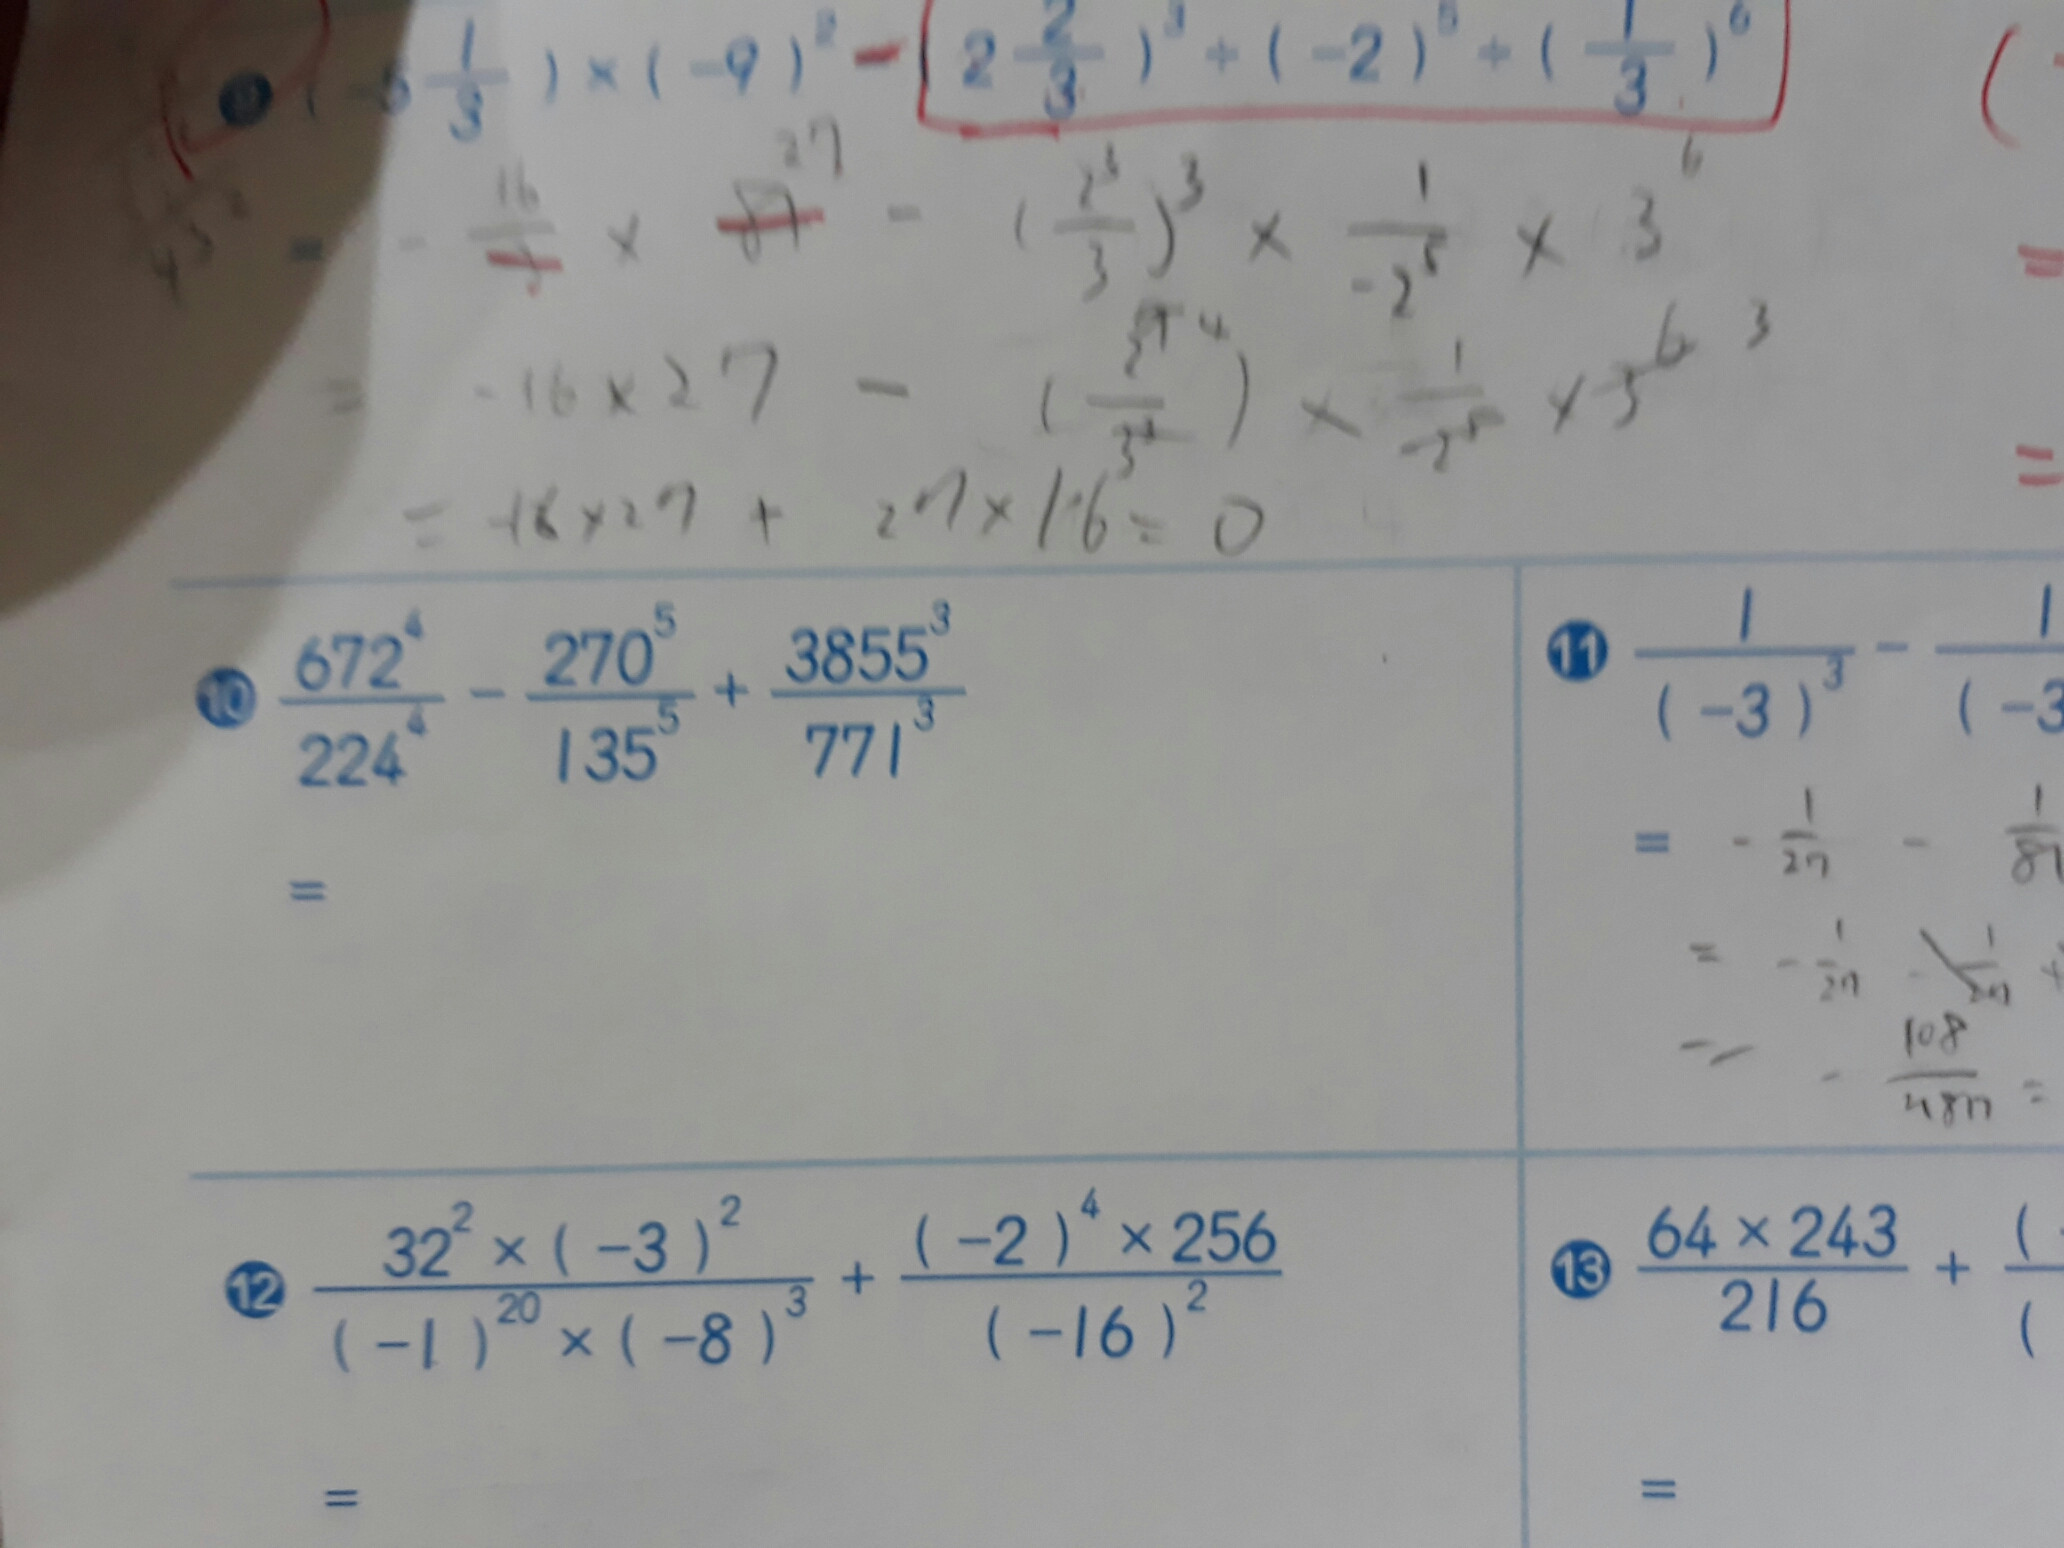 ❾ (-5 1/3) × (-9)² - (2 2/3)³ ÷ (-2)⁵ ÷ (1/3)⁶
= - 16/3 × 81 27 - (2³/3)³ × 1/-2⁵ × 3⁶
= -16×27 - (2⁹ ⁴/3³) × 1/-2⁵ × 3⁶ ³
= -16×27 + 27×16 = 0
❿ 672⁴/224⁴ - 270⁵/135⁵ + 3855³/771³
=
⓫ 1/(-3)³ - 1/(-3
= - 1/27 - 1/81
= - 1/27 - 1/27 +
= - 108/487 =
⓬ 32² × (-3)²/(-1)²⁰ × (-8)³ + (-2)⁴ × 256/(-16)²
=
⓭ 64 × 243/216 + (
=